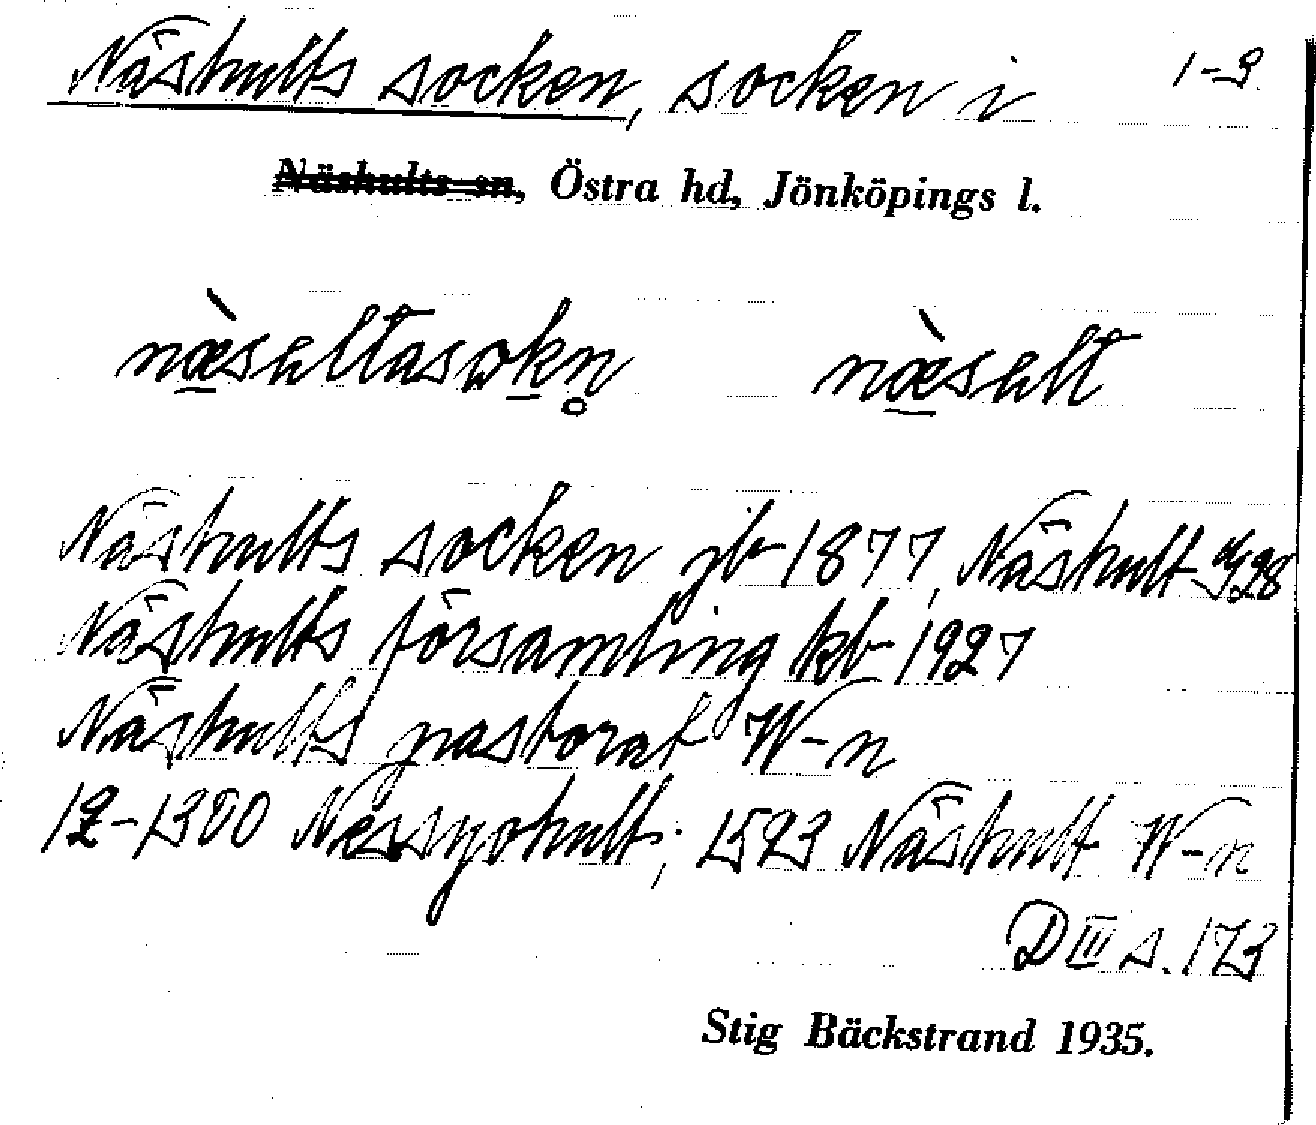 Näshults socken, socken i 1-9
Näshults sn, Östra hd, Jönköpings l.
næ̀sultasωkn̥ næ̀sult
Näshults socken jb 1877, Näshult
Näshults församling kb 1927
Näshults pastorat W-n
12-1300 Nessyohult; 1523 Näshult W-n
D III s. 173
Stig Bäckstrand 1935.